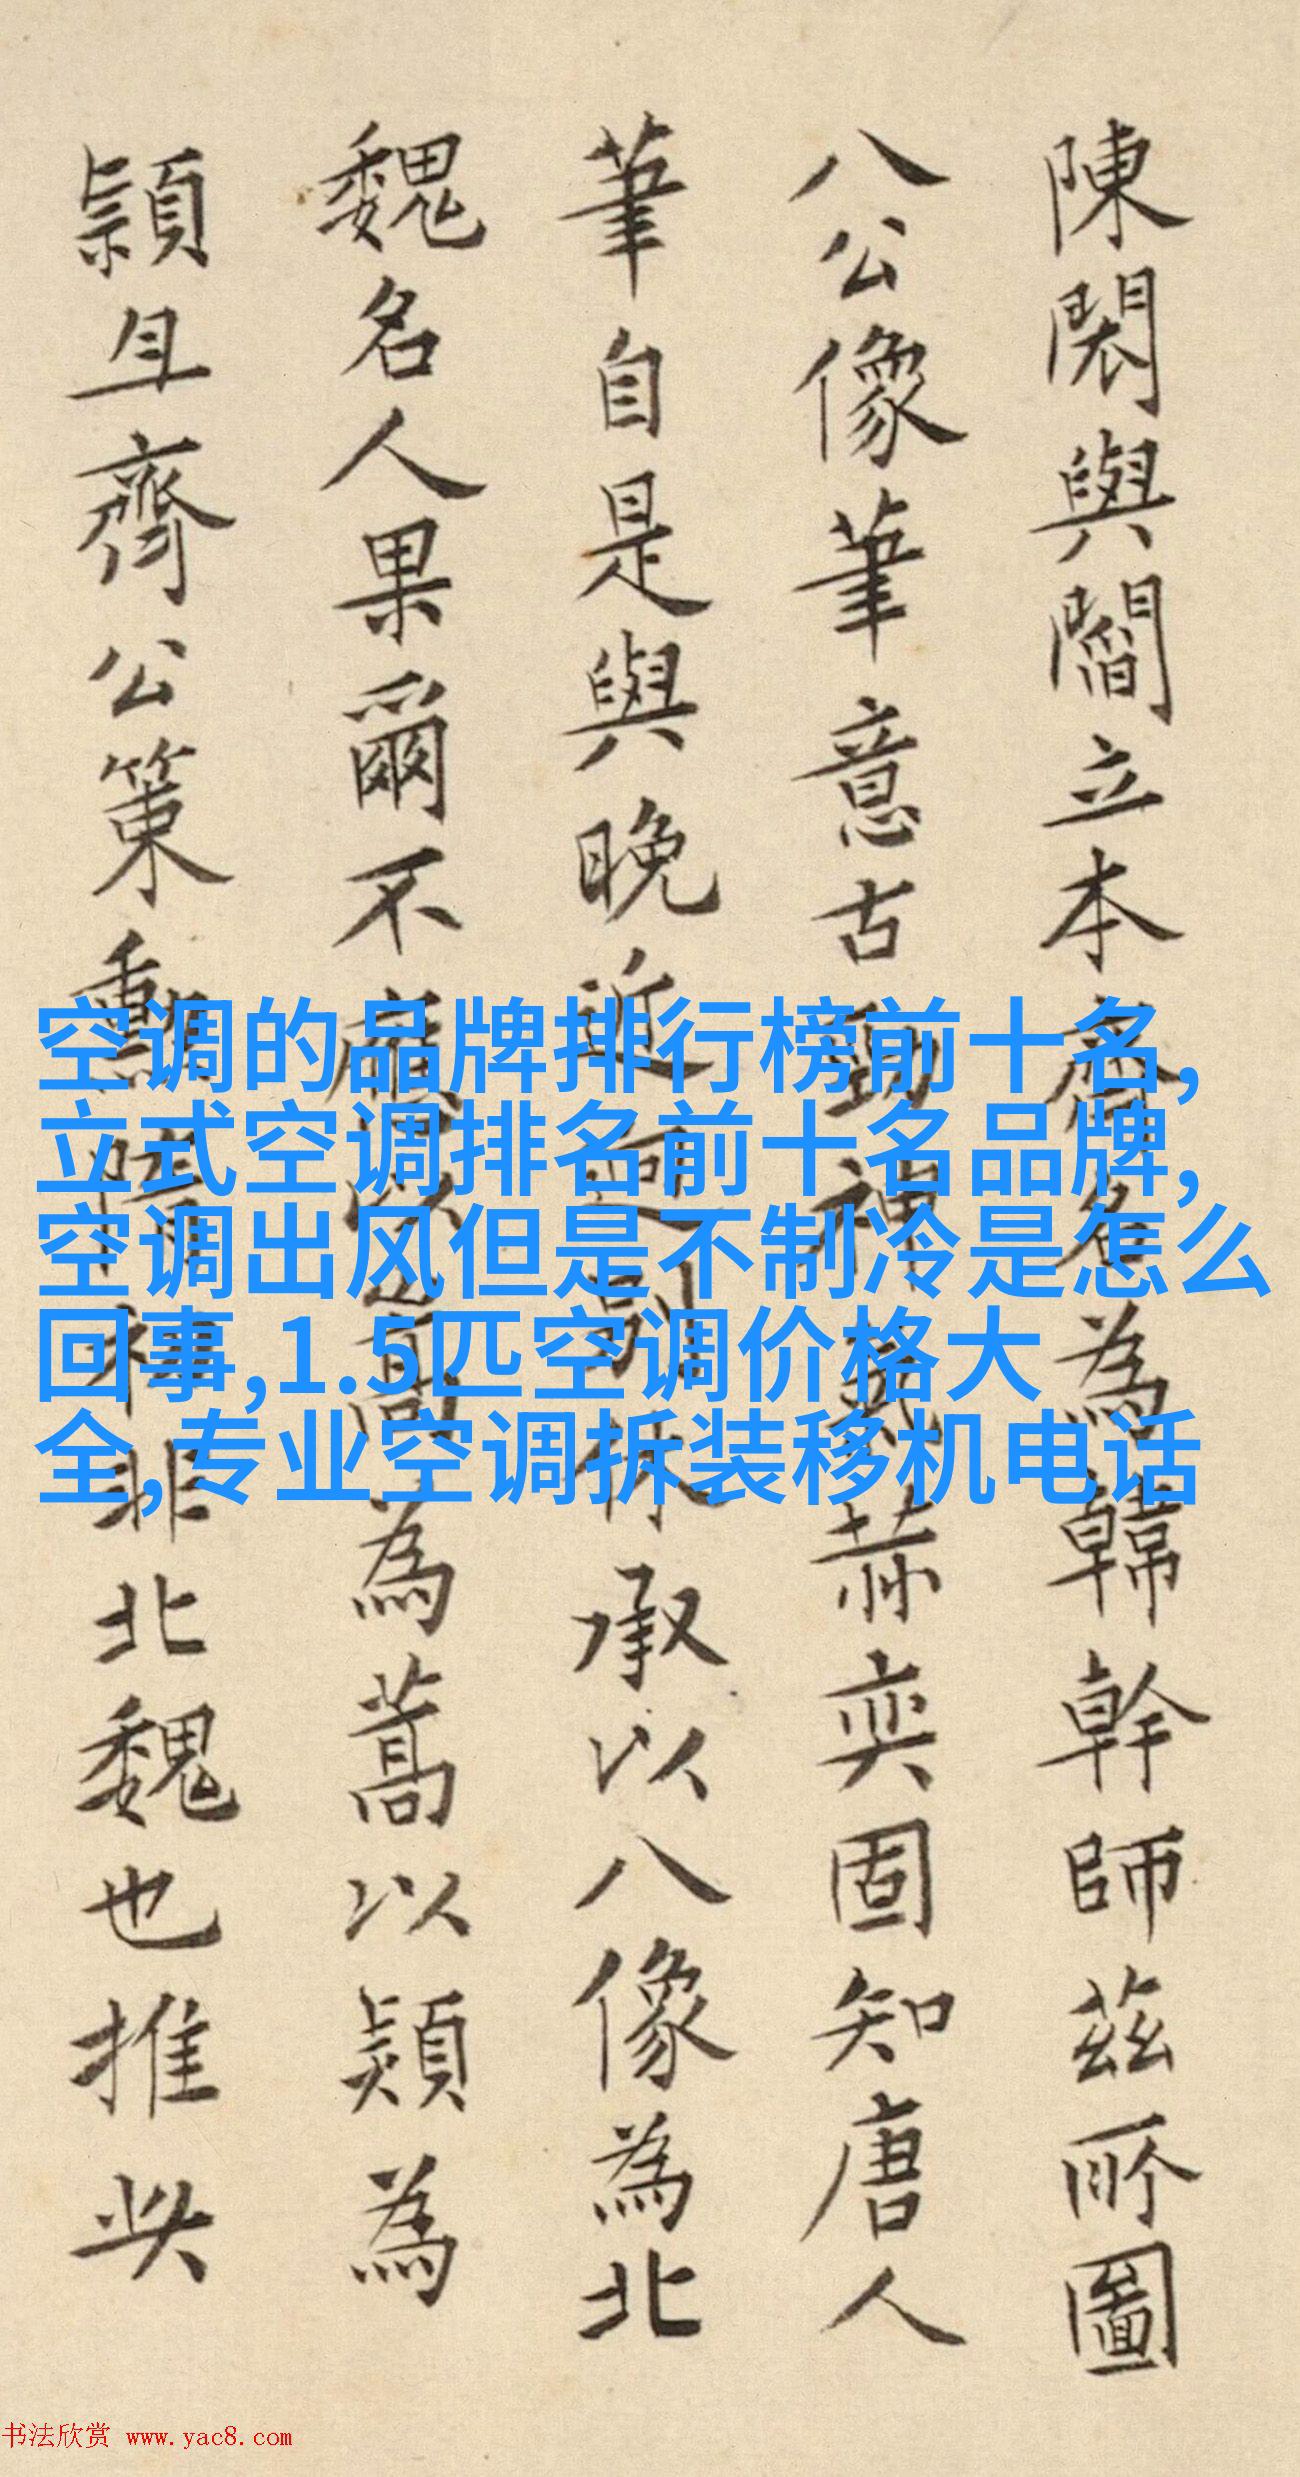 陳閎與閻立本齊名為韓幹師茲所圖
八公像筆意古勁神氣赫奕固知唐人
筆自是與晚近迥別林承以八像為北
魏名人果爾不應以嵩為蒿以頴為
頴且齊公策勳隋初非北魏也推此
空调的品牌排行榜前十名,
立式空调排名前十名品牌,
空调出风但是不制冷是怎么
回事,1.5匹空调价格大
全,专业空调拆装移机电话
书法欣赏 www.yac8.com